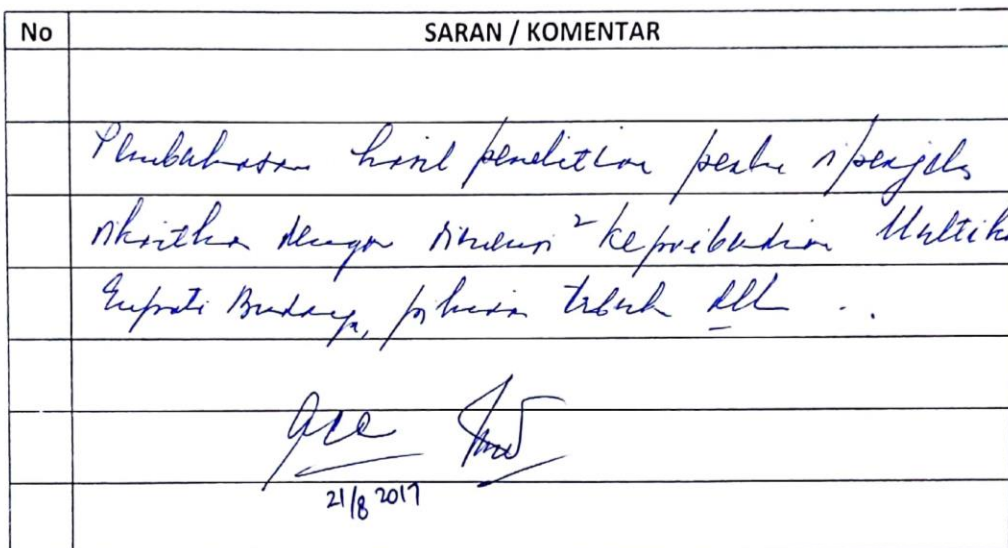 No SARAN / KOMENTAR
Pembahasan hasil penelitian perlu diperjelas
dikaitkan dengan dimensi² kepribadian Multik
Empati Budaya, pikiran terbuka dll ..
acc
21/8 2017